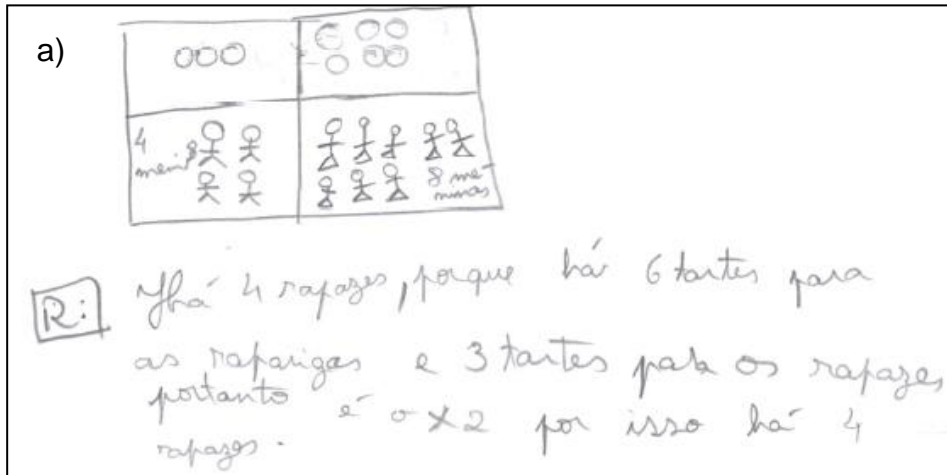 a)
4
meninos
8 me-
ninas
R: Há 4 rapazes, porque há 6 tartes para
as raparigas e 3 tartes para os rapazes
portanto é o x2 por isso há 4
rapazes.